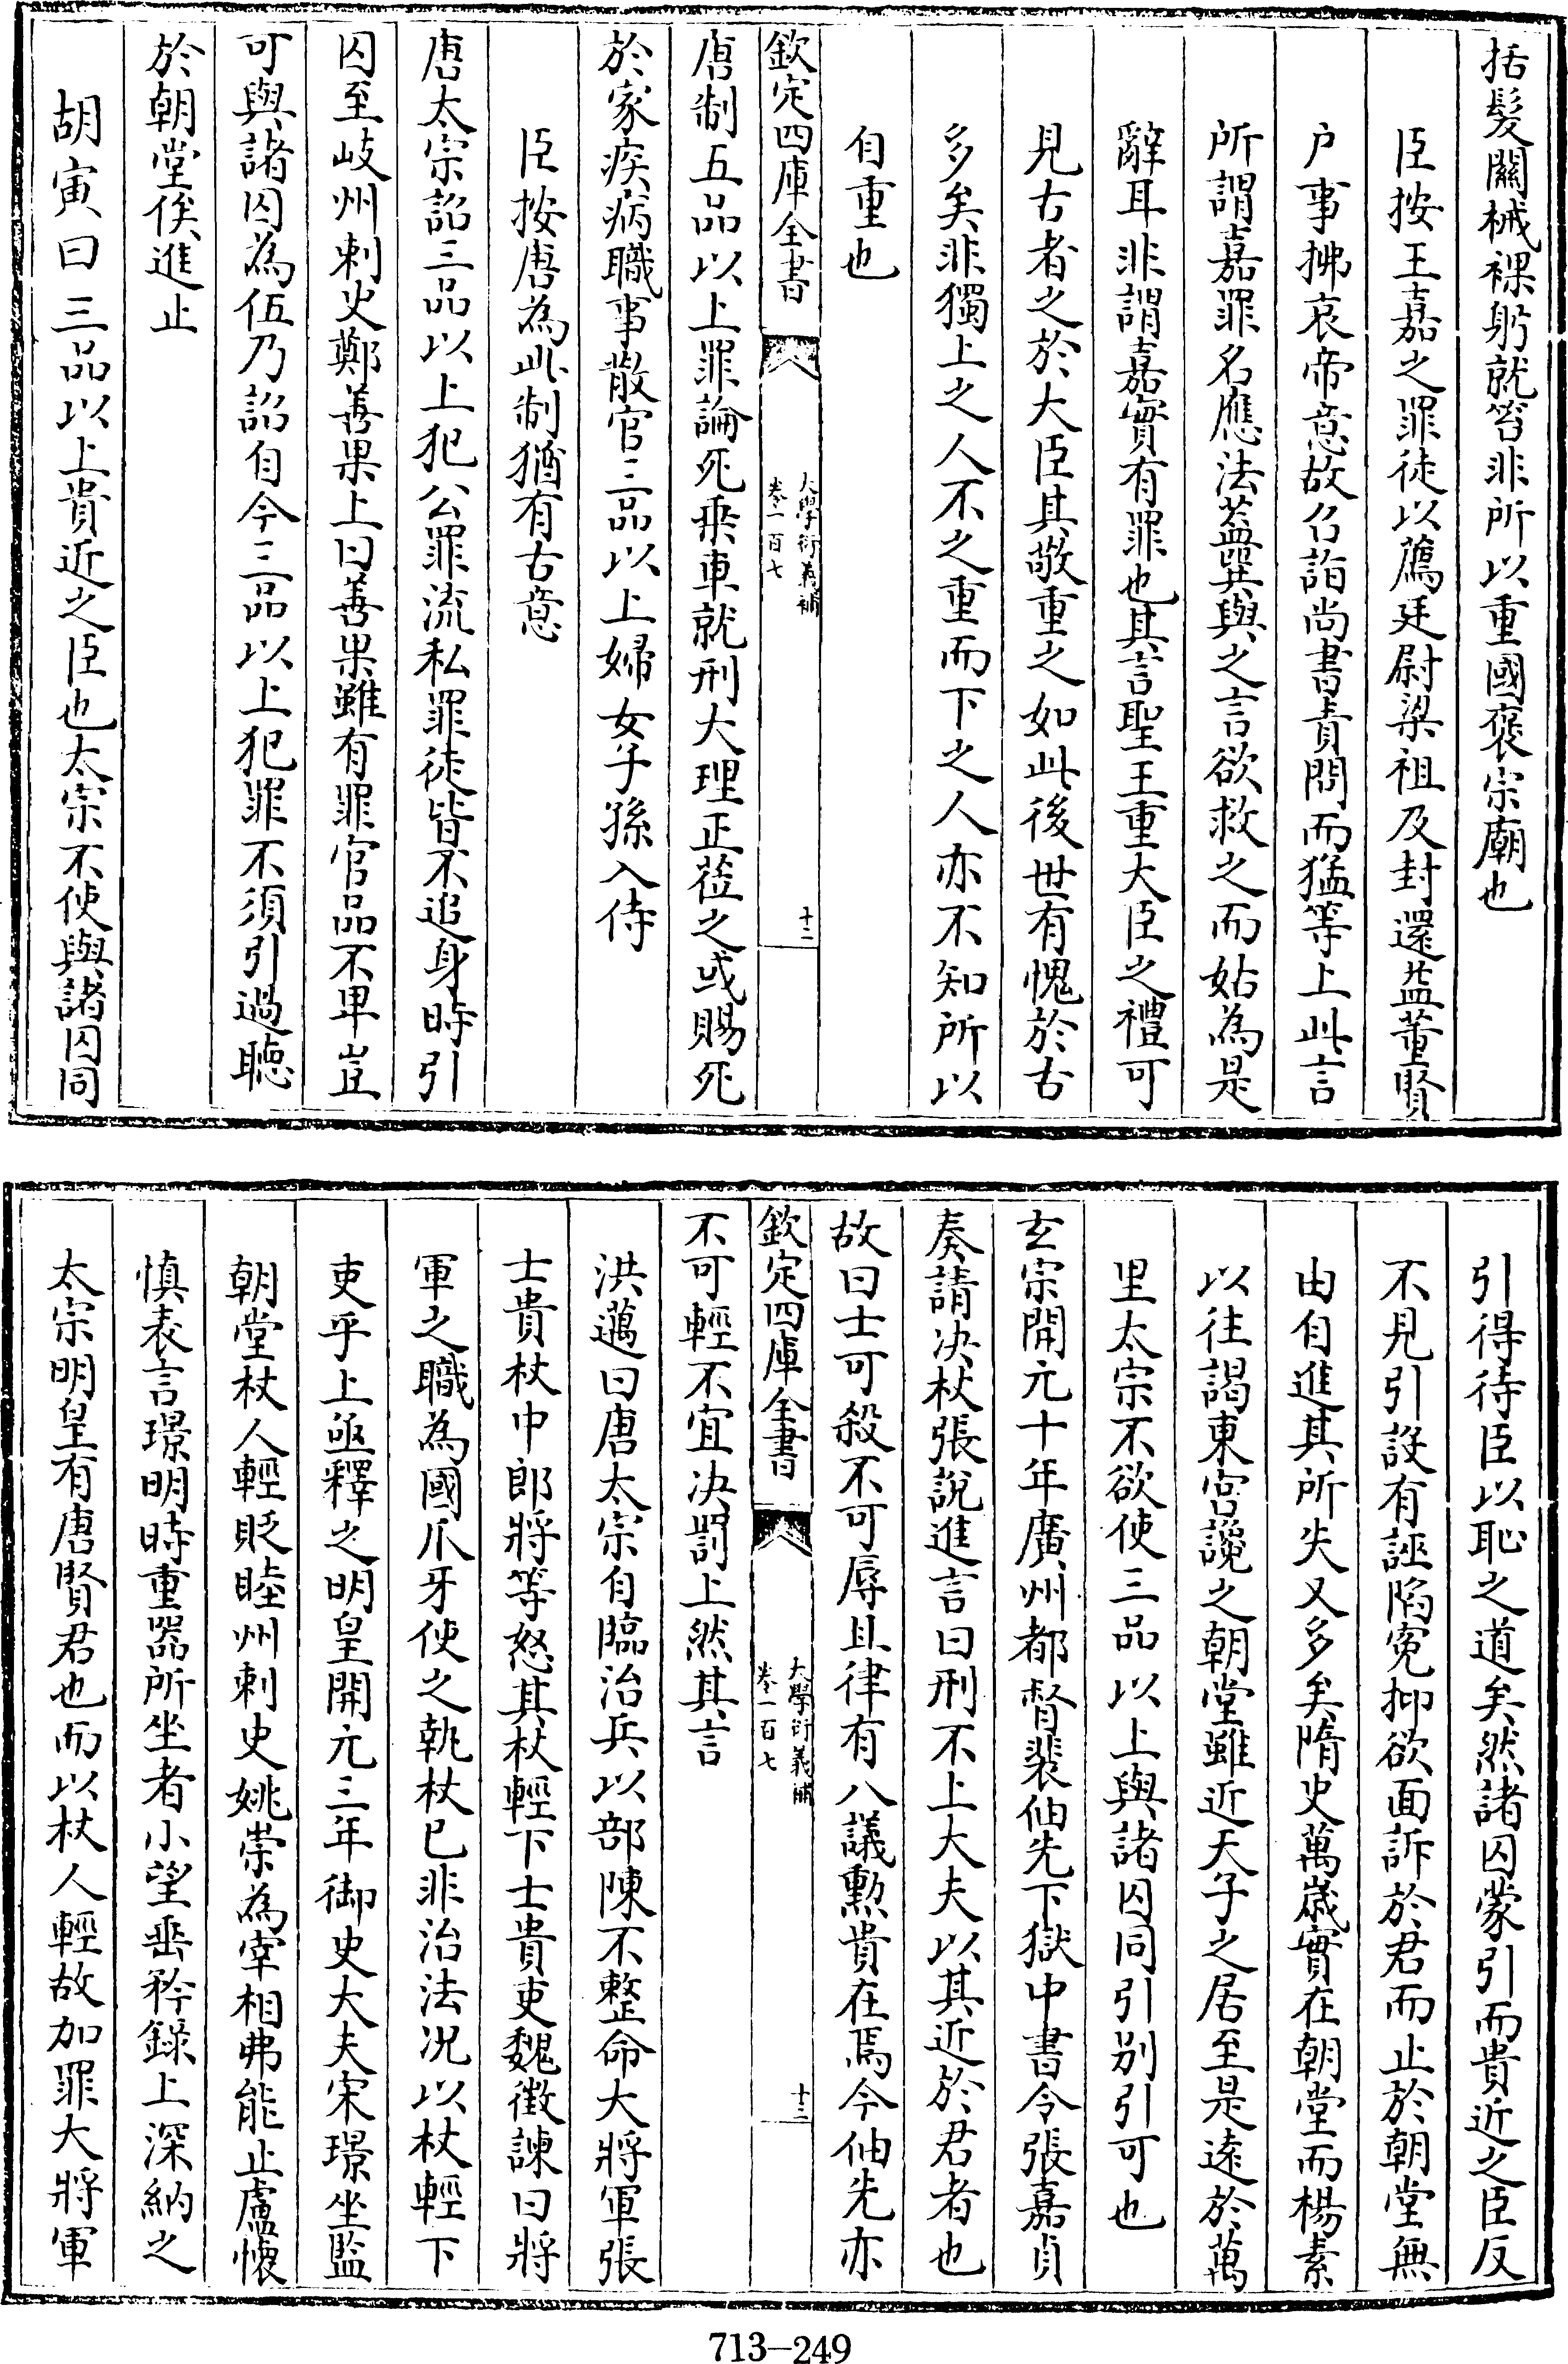 括髮關械裸躬就笞非所以重國褒宗廟也
臣按王嘉之罪徒以薦廷尉梁祖及封還益董賢
户事拂哀帝意故召詣尚書責問而猛等上此言
所謂嘉罪名應法蓋巽與之言欲救之而姑為是
辭耳非謂嘉實有罪也其言聖王重大臣之禮可
見古者之於大臣其敬重之如此後世有愧於古
多矣非獨上之人不之重而下之人亦不知所以
自重也
欽定四庫全書 大學衍義補 卷一百七 十二
唐制五品以上罪論死乗車就刑大理正莅之或賜死
於家疾病職事散官三品以上婦女子孫入侍
臣按唐為此制猶有古意
唐太宗詔三品以上犯公罪流私罪徒皆不追身時引
囚至岐州刺史鄭善果上曰善果雖有罪官品不卑豈
可與諸囚為伍乃詔自今三品以上犯罪不須引過聴
於朝堂俟進止
胡寅曰三品以上貴近之臣也太宗不使與諸囚同
引得待臣以恥之道矣然諸囚蒙引而貴近之臣反
不見引設有誣陷寃抑欲面訴於君而止於朝堂無
由自進其所失又多矣隋史萬嵗實在朝堂而楊素
以往謁東宮讒之朝堂雖近天子之居至是逺於萬
里太宗不欲使三品以上與諸囚同引别引可也
玄宗開元十年廣州都督裴伷先下獄中書令張嘉貞
奏請决杖張說進言曰刑不上大夫以其近於君者也
故曰士可殺不可辱且律有八議勲貴在焉今伷先亦
欽定四庫全書 大學衍義補 卷一百七 十三
不可輕不宜决罰上然其言
洪邁曰唐太宗自臨治兵以部陳不整命大將軍張
士貴杖中郎將等怒其杖輕下士貴吏魏徵諫曰將
軍之職為國爪牙使之執杖已非治法况以杖輕下
吏乎上亟釋之明皇開元三年御史大夫宋璟坐監
朝堂杖人輕貶睦州刺史姚崇為宰相弗能止盧懷
慎表言璟明時重器所坐者小望垂矜録上深納之
太宗明皇有唐賢君也而以杖人輕故加罪大將軍
713—249